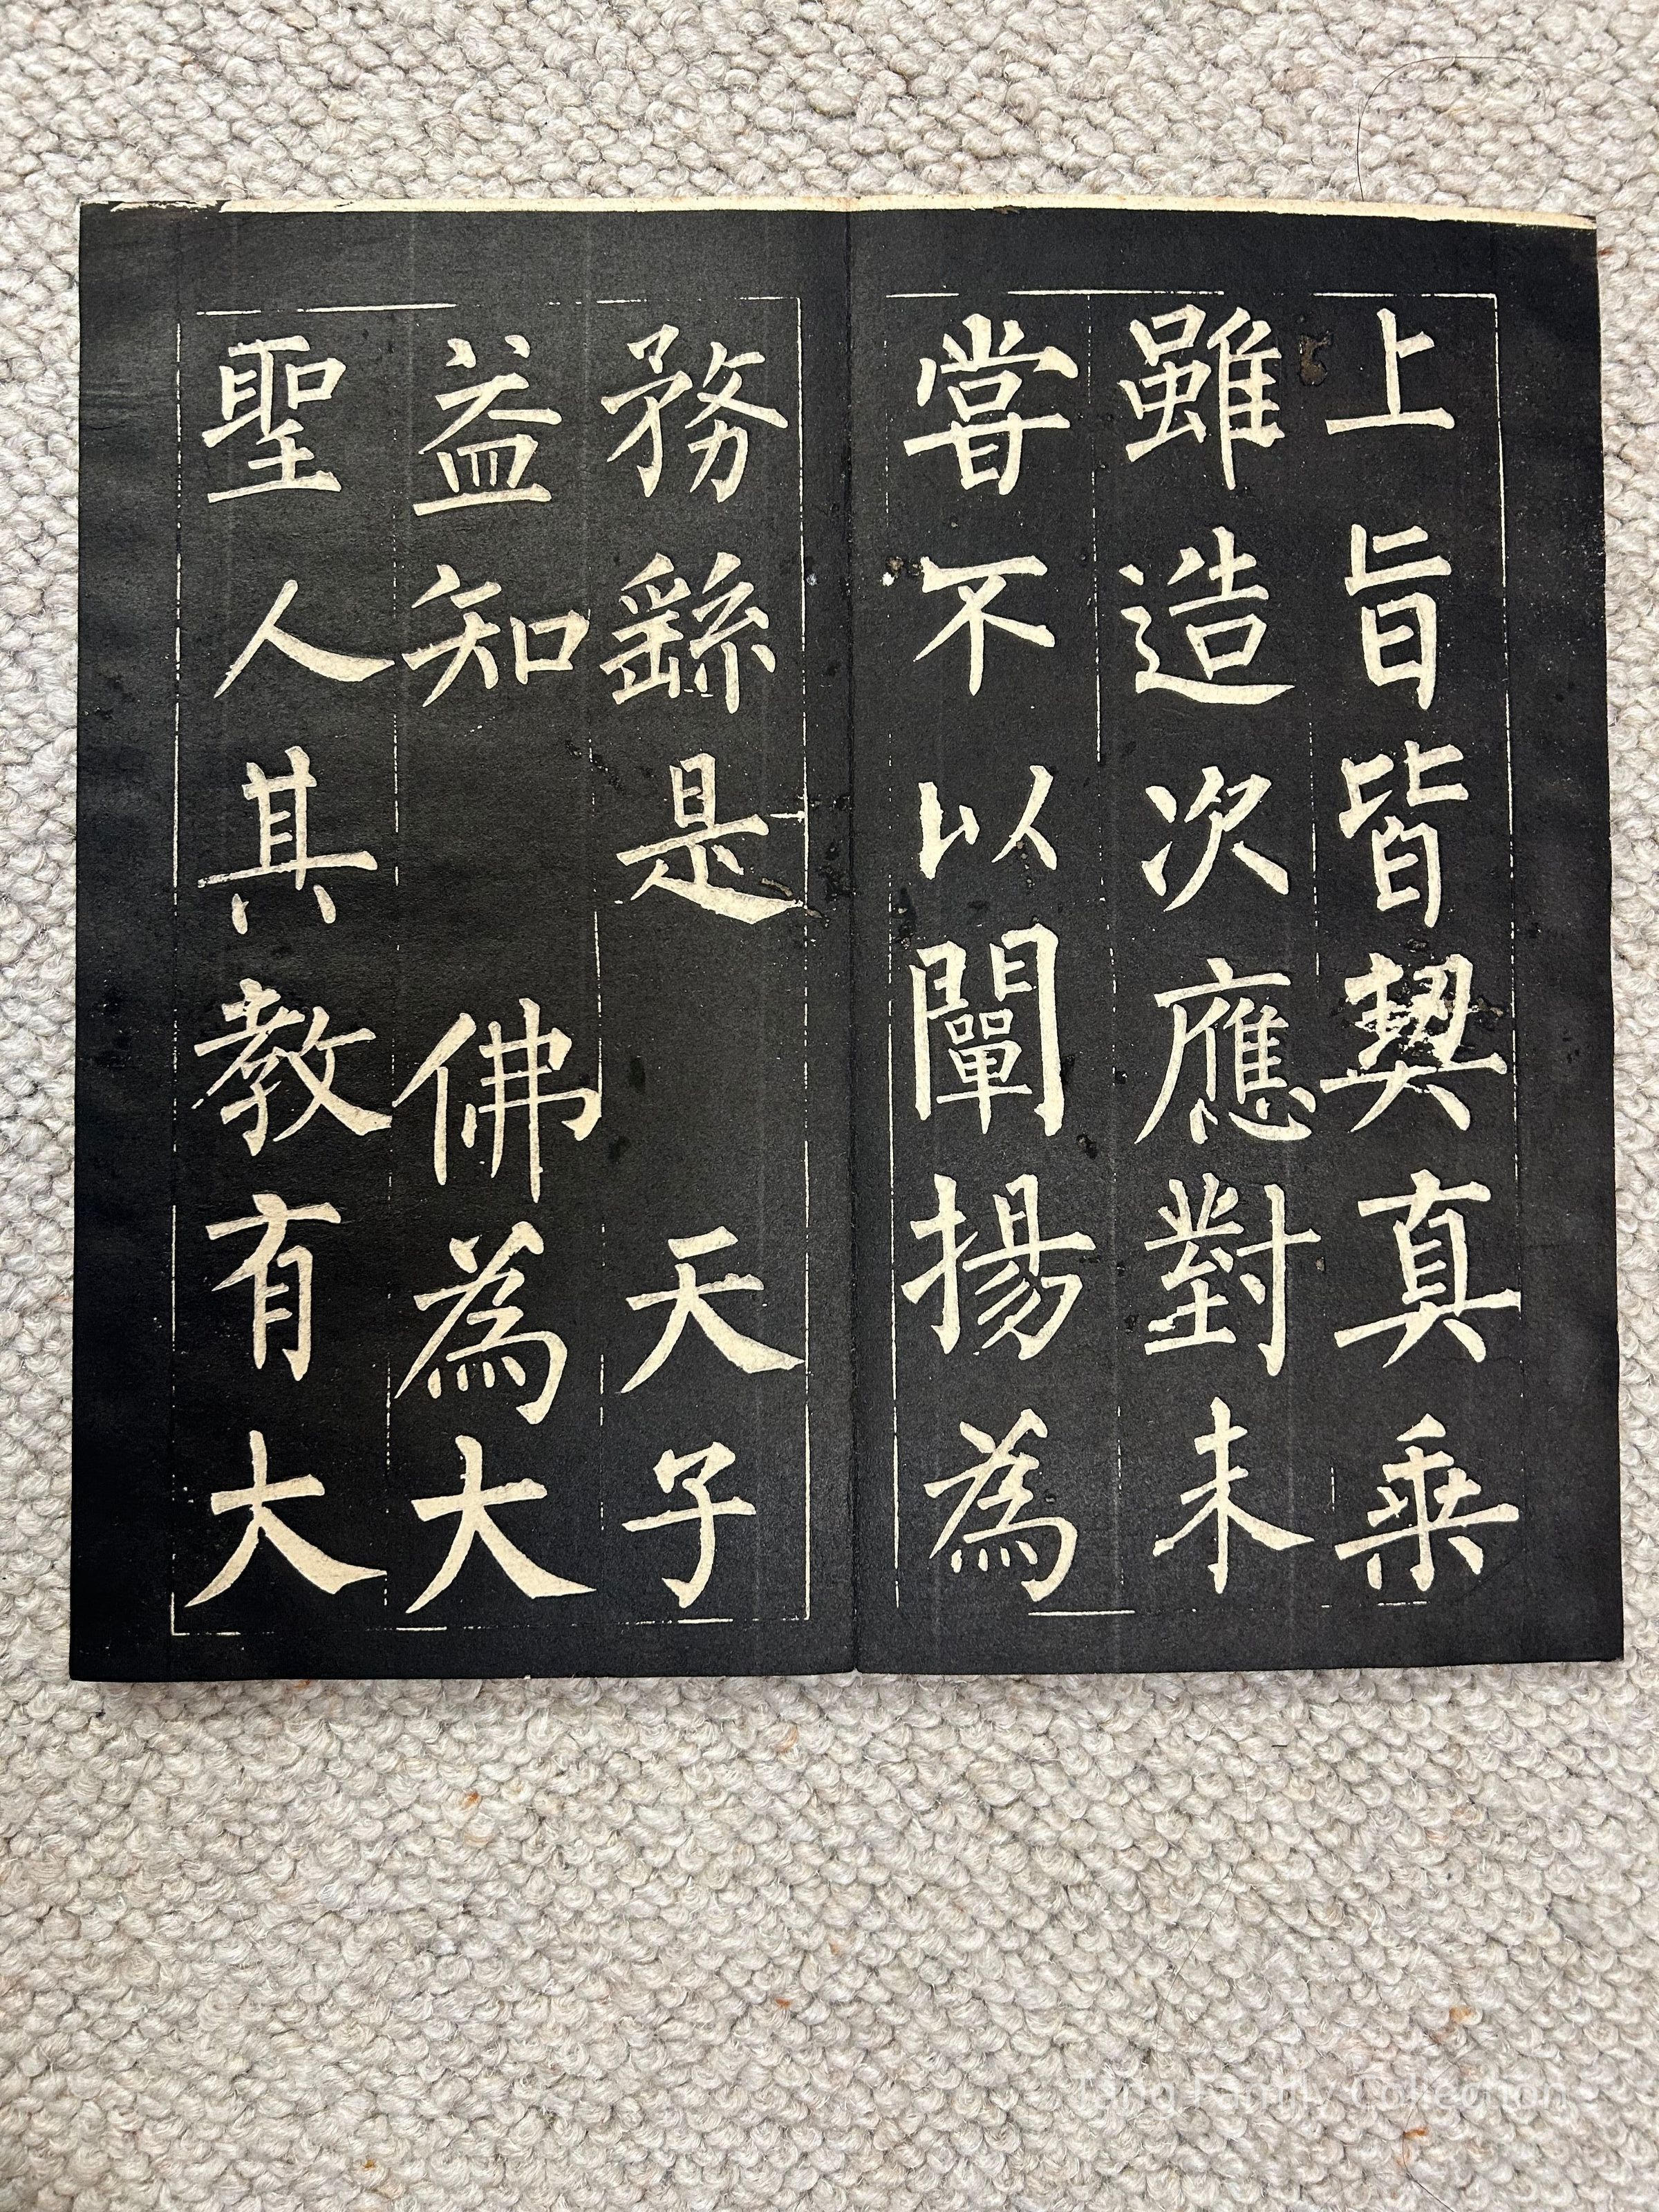 上旨皆契真乘
雖造次應對未
嘗不以闡揚為
務繇是　　天子
益知　佛為大
聖人其教有大
Tang Family Collection